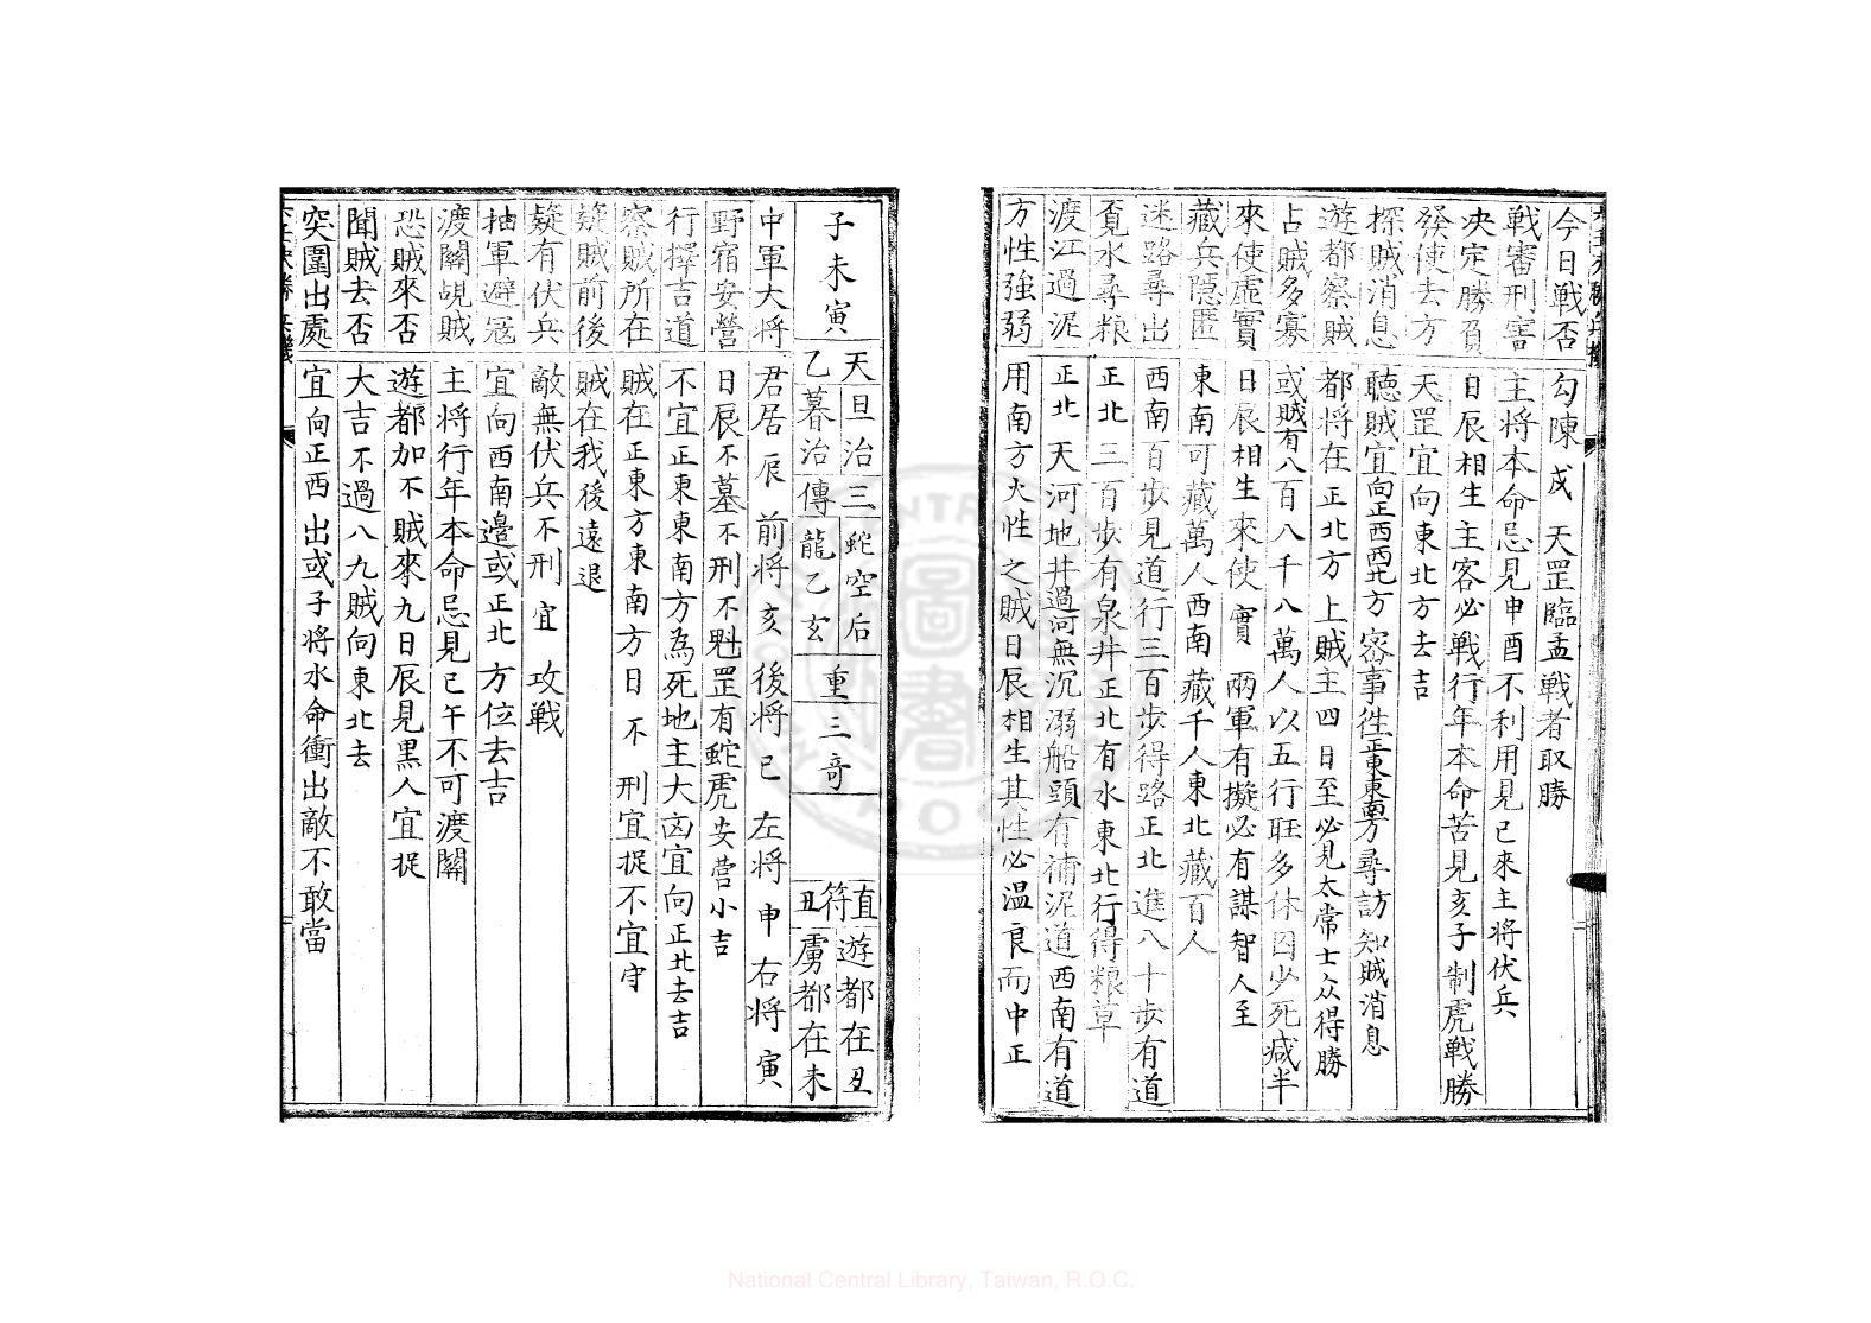 今日戰否 勾陳戌 天罡臨孟戰者取勝
戰審刑害 主將本命忌見申酉不利用見巳來主將伏兵
决定勝負 日辰相生主客必戰行年本命苦見亥子制虎戰勝
發使去方 天罡宜向東北方去吉
探賊消息 聽賊宜向正西西北方 密事徃正東東南方尋訪知賊消息
遊都察賊 都將在正北方上賊主四日至必見太常士众得勝
占賊多寡 或賊有八百八千八萬人以五行旺多休囚少死减半
來使虛實 日辰相生來使實 兩軍有擬必有謀智人至
藏兵隱匿 東南可藏萬人西南藏千人東北藏百人
迷路尋出 西南百步見道行三百步得路正北進八十步有道
覔水尋粮 正北三百步有泉井正北有水東北行得粮草
渡江過泥 正北 天河地井過河無沉溺船頭有淖泥道西南有道
方性強弱 用南方火性之賊日辰相生其性必温良而中正
子未寅
天乙
旦治
暮治
三傳
蛇空后
龍乙玄
重
三奇
直符丑
遊都在丑
虜都在未
中軍大将 君居辰 前将亥 後将巳 左将申 右将寅
野宿安營 日辰不墓不刑不魁罡有蛇虎安營小吉
行擇吉道 不宜正東東南方為死地主大凶宜向正北去吉
察賊所在 賊在正東方東南方日不 刑宜捉不宜守
疑賊前後 賊在我後遠退
疑有伏兵 敵無伏兵不刑 宜 攻戰
抽軍避冦 宜向西南邉或正北方位去吉
渡關覘賊 主將行年本命忌見巳午不可渡關
恐賊來否 遊都加不賊來九日辰見黒人宜捉
聞賊去否 大吉不過八九賊向東北去
突圍出處 宜向正西出或子將水命衝出敵不敢當
National Central Library, Taiwan, R.O.C.